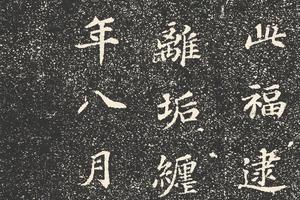 此福逮
離垢纏
年八月